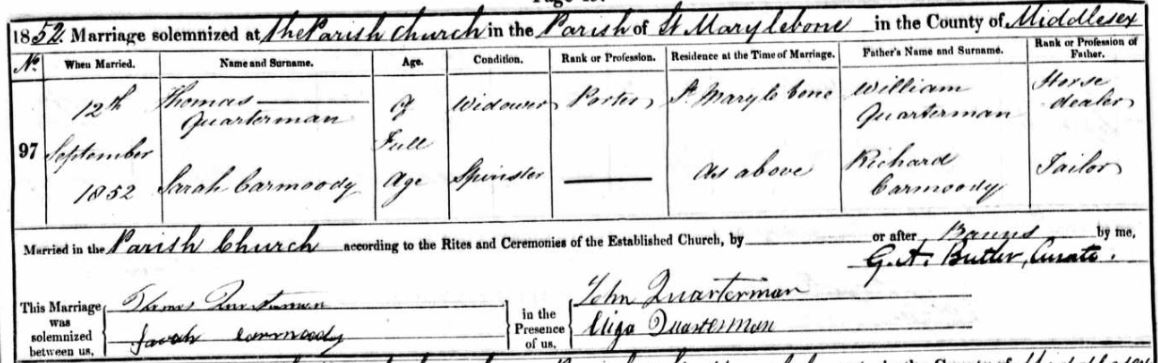 1852. Marriage solemnized at the Parish Church in the Parish of St Marylebone in the County of Middlesex
No. When Married. Name and Surname. Age. Condition. Rank or Profession. Residence at the Time of Marriage. Father's Name and Surname. Rank or Profession of Father.
97
12th September 1852
Thomas Quarterman
Of Full Age
Widower
Porter
St Marylebone
William Quarterman
Horse dealer
Sarah Carmoody
Spinster
As above
Richard Carmoody
Tailor
Married in the Parish Church according to the Rites and Ceremonies of the Established Church, by or after Banns by me,
G.A. Butler, Curate.
This Marriage was solemnized between us,
Thomas Quarterman
Sarah Carmoody
in the Presence of us.
John Quarterman
Eliza Quarterman